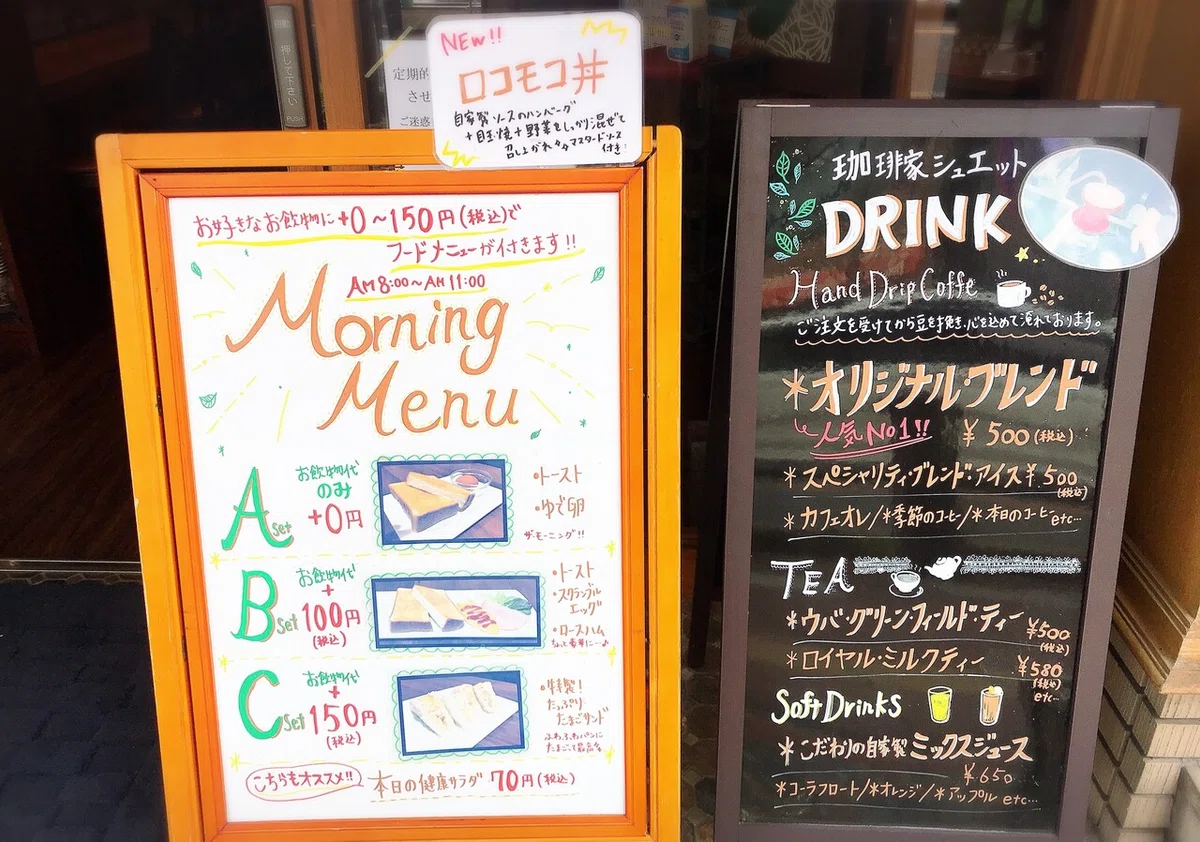 自動
押して下さい
PUSH
定期的
させ
ご迷惑
NEW!!
ロコモコ丼
自家製ソースのハンバーグ
+目玉焼+野菜をしっかり混ぜて
召し上がれ マスタードソース
付き!
お好きなお飲物に+0~150円(税込)で
フードメニューが付きます!!
AM8:00~AM11:00
Morning
Menu
A set
お飲物代
のみ
+0円
・トースト
・ゆで卵
ザ・モーニング!!
B set
お飲物代
+
100円
(税込)
・トースト
・スクランブル
エッグ
・ロースハム
ちょっと豪華に…♪
C set
お飲物代
+
150円
(税込)
・特製!
たっぷり
たまごサンド
ふわふわパンに
たまごって最高
こちらもオススメ!!
本日の健康サラダ 70円(税込)
珈琲家シュエット
DRINK
Hand Drip Coffe
ご注文を受けてから豆を挽き、心を込めて淹れております。
*オリジナル・ブレンド
人気No1!! ¥500(税込)
*スペシャリティ・ブレンド・アイス¥500
(税込)
*カフェオレ/*季節のコーヒー/*本日のコーヒー etc…
TEA
*ウバ・グリーン・フィールド・ティー
¥500
(税込)
*ロイヤル・ミルクティー
¥580
(税込)
etc…
Soft Drinks
*こだわりの自家製ミックスジュース
¥650
*コーラフロート/*オレンジ/*アップル etc…